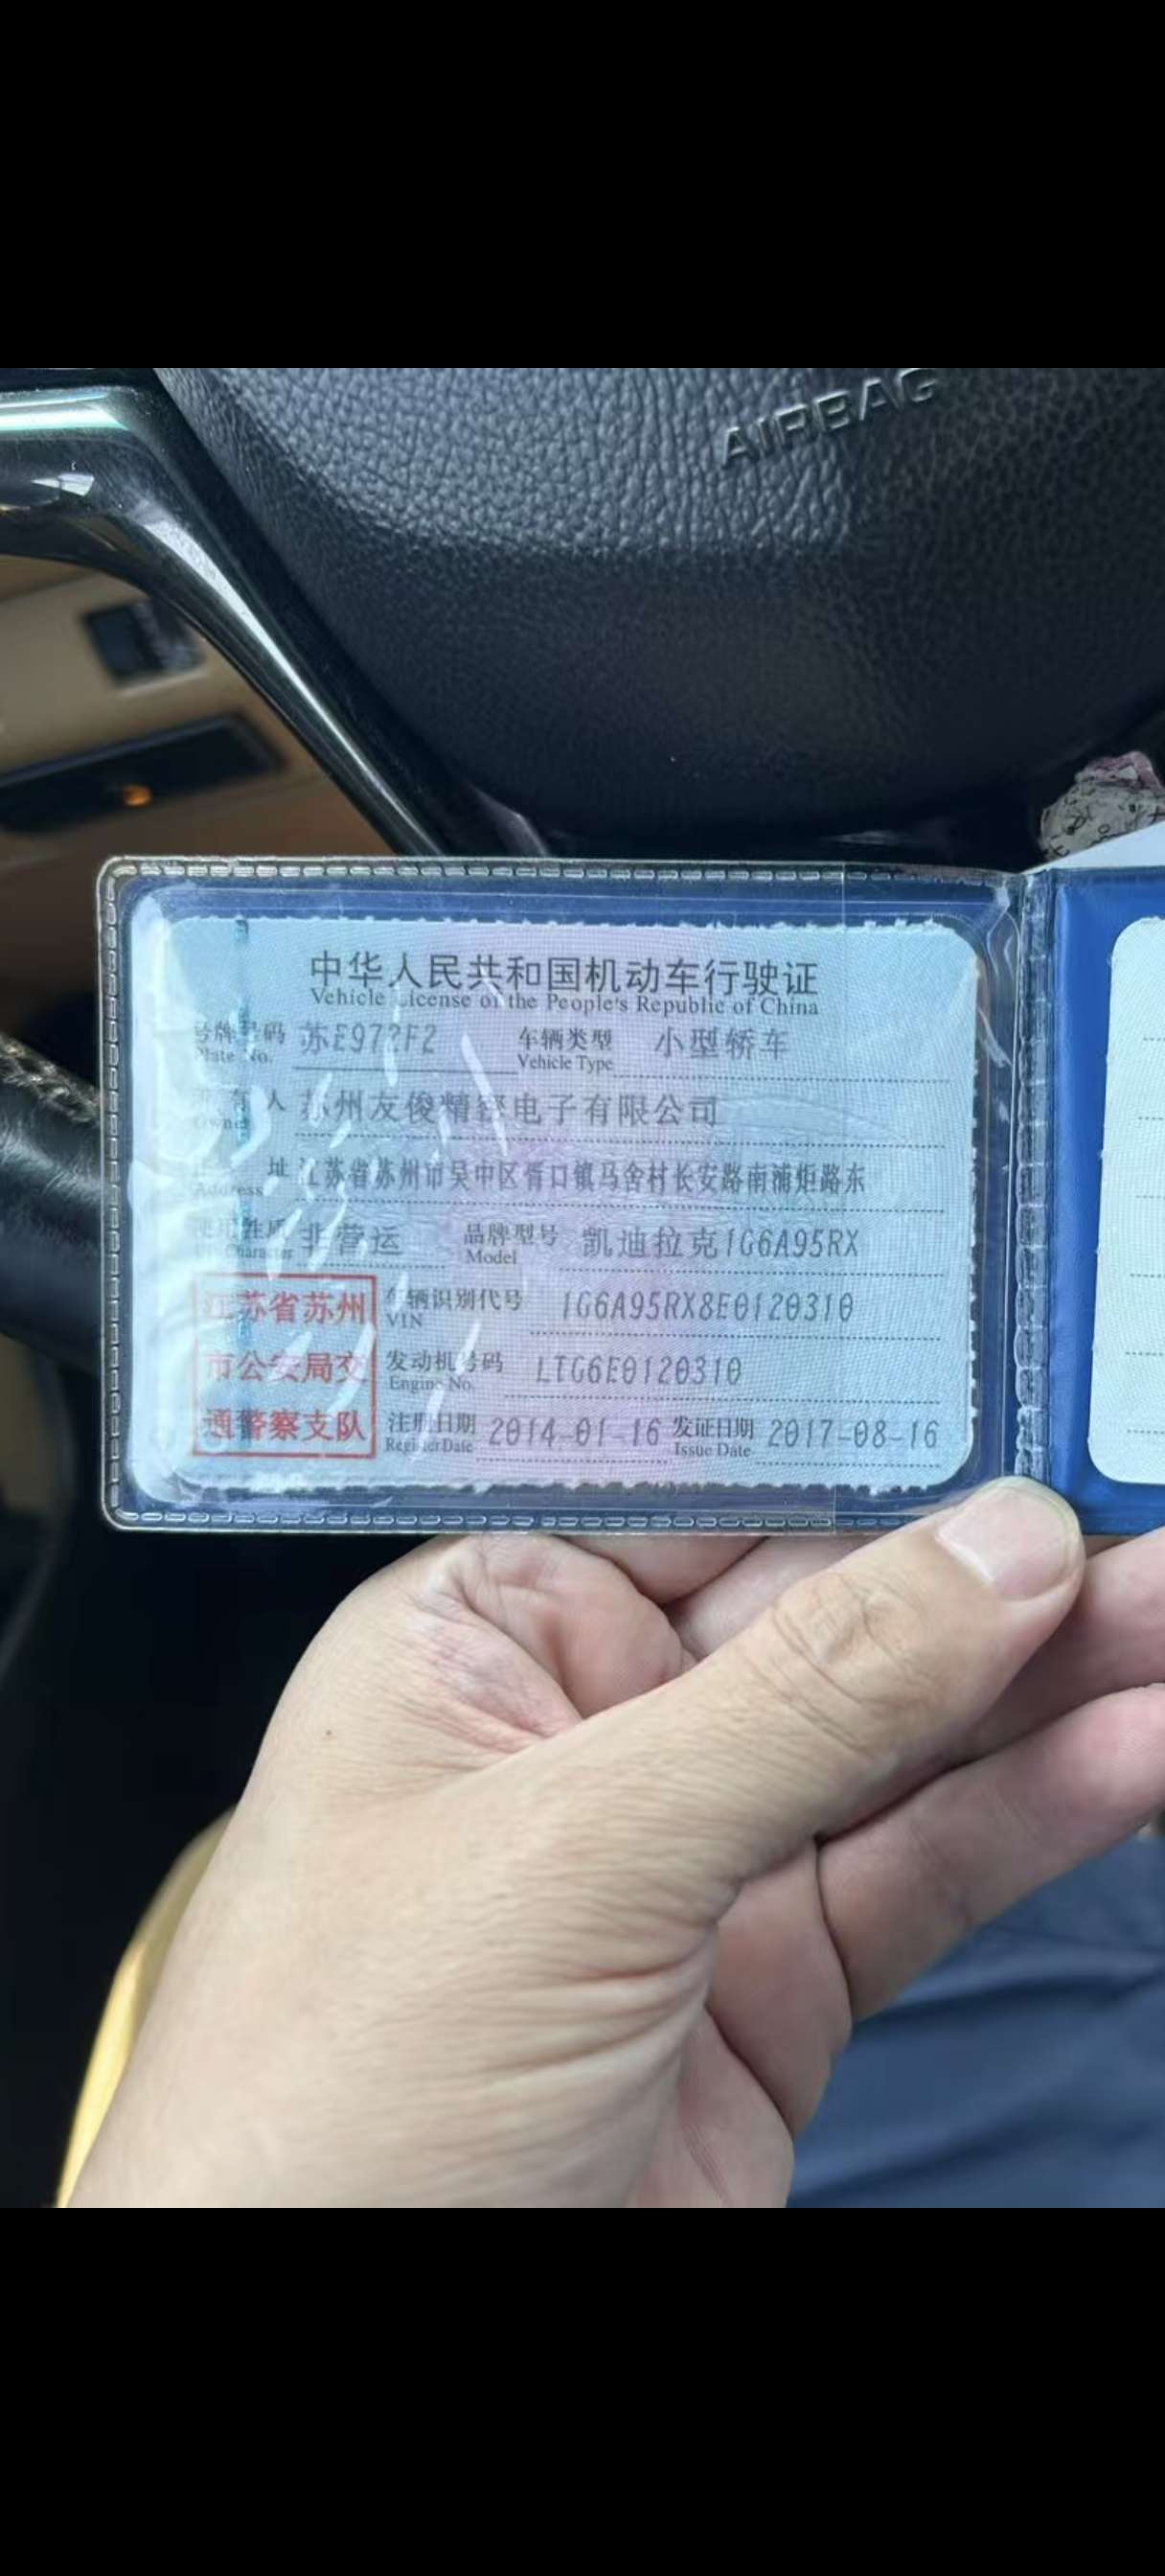 AIRBAG
中华人民共和国机动车行驶证
Vehicle License of the People's Republic of China
号牌号码 苏E972F2 车辆类型 小型轿车
Plate No. Vehicle Type
有 人 苏州友俊精密电子有限公司
Owner
址 江苏省苏州市吴中区胥口镇马舍村长安路南浦炬路东
Address
使用性质 非营运 品牌型号 凯迪拉克1G6A95RX
Character Model
江苏省苏州 车辆识别代号 1G6A95RX8E0120310
VIN
市公安局交 发动机号码 LTG6E0120310
Engine No.
通警察支队 注册日期 2014-01-16 发证日期 2017-08-16
Register Date Issue Date